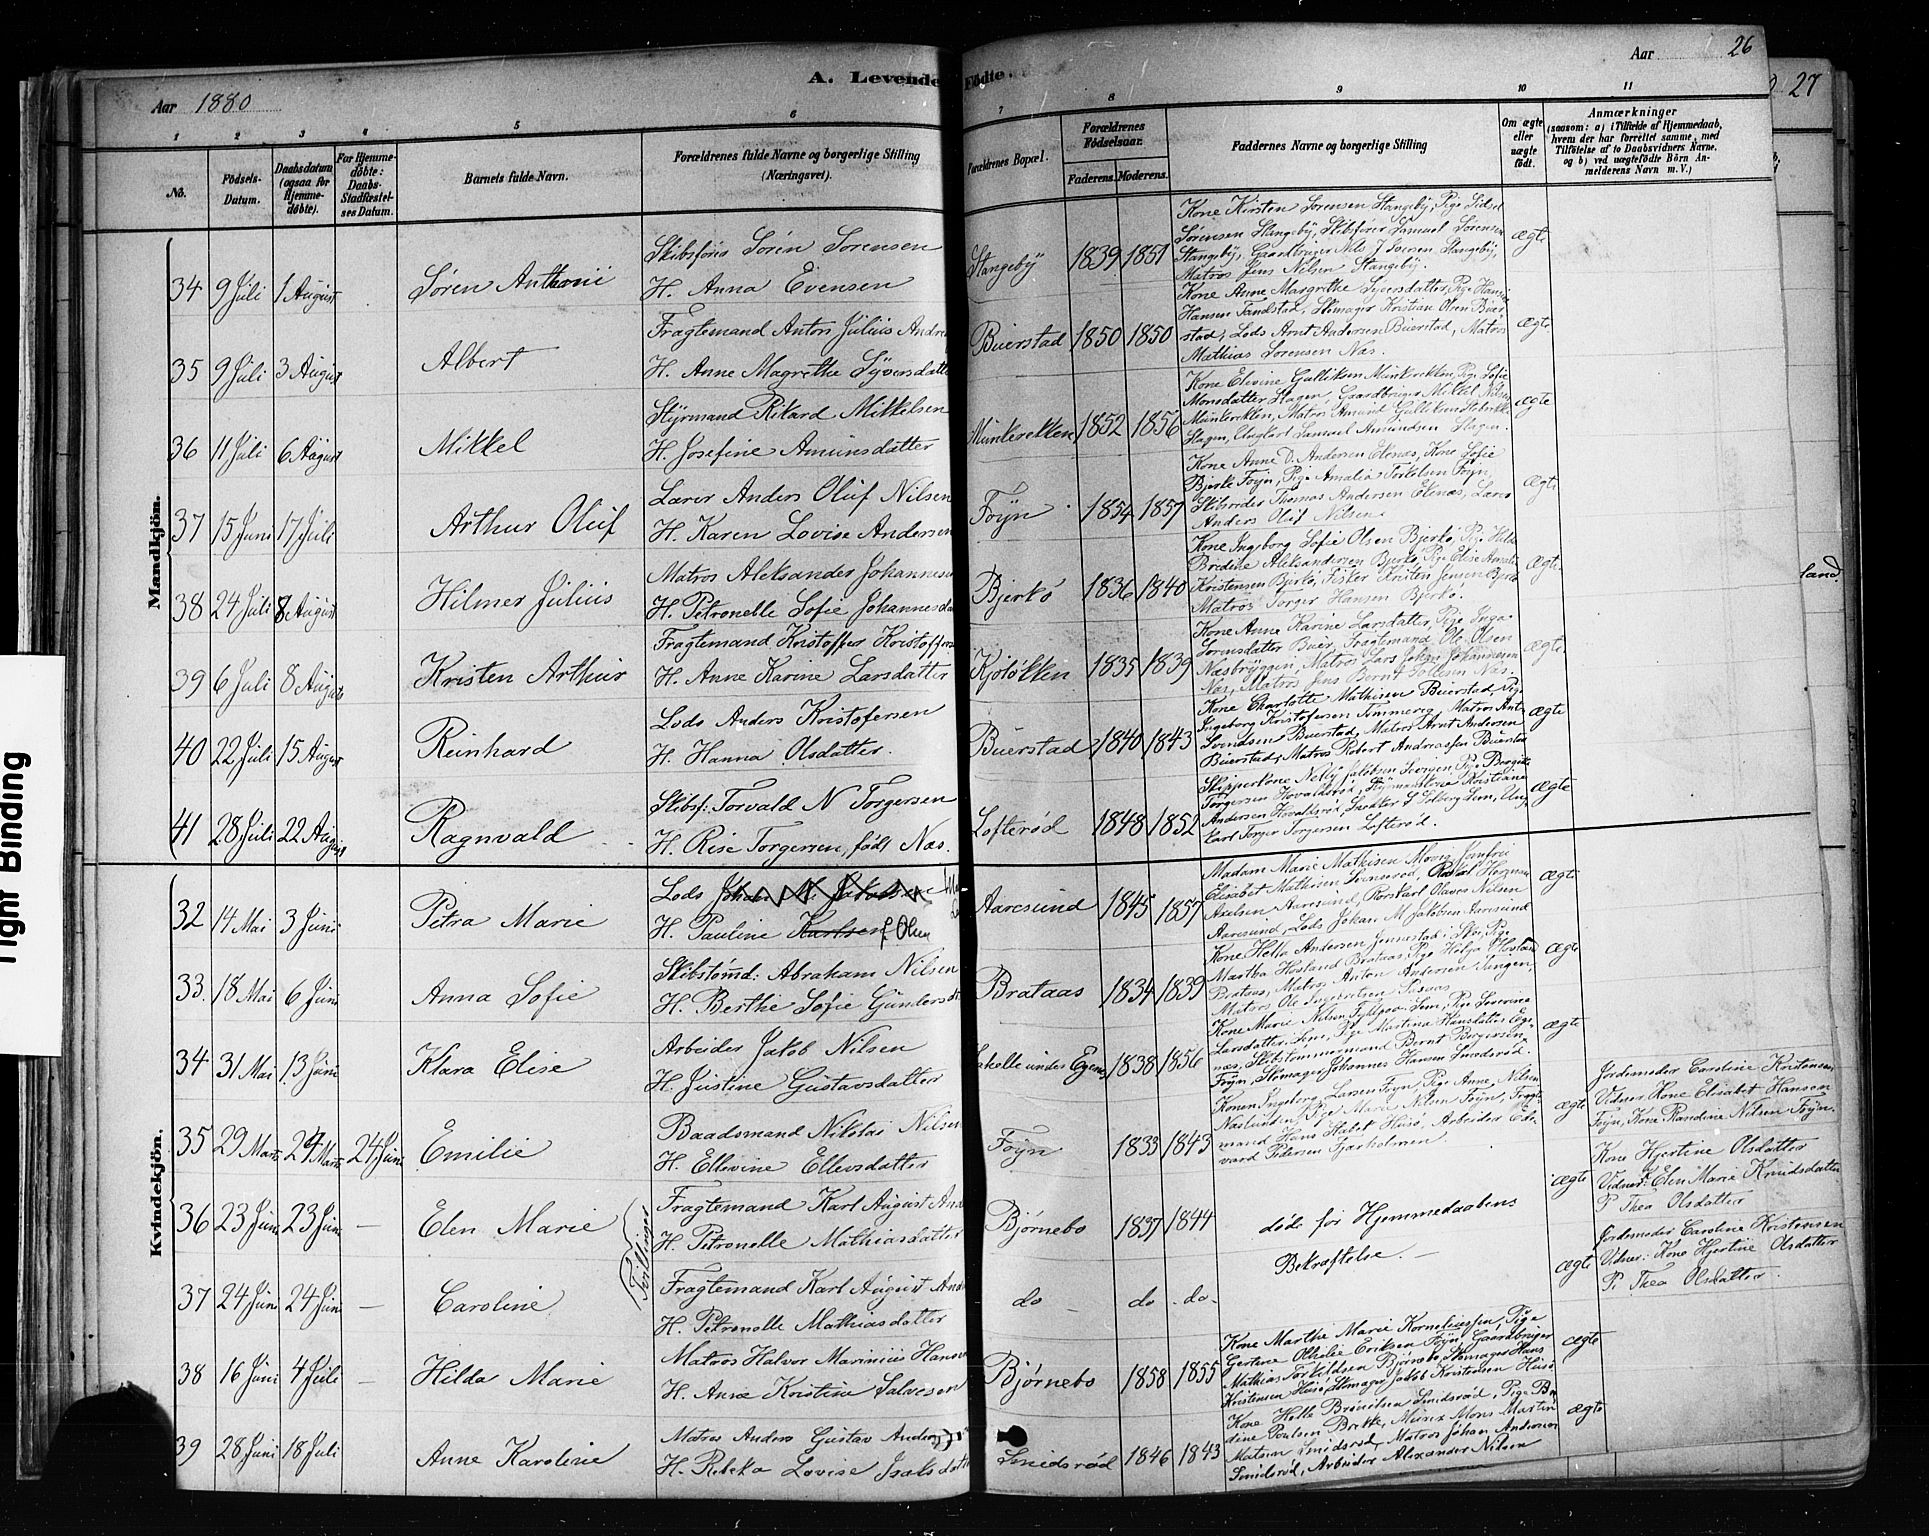 Tight Binding
A. Levende Fødte.
Aar 1880
Aar 26
27
1 2 3 4 5 6 7 8 9 10 11
No.
Fødsels-Datum.
Daabsdatum (ogsaa for Hjemme-døbte).
For Hjemme-døbte: Daabs-Stadfæstel-ses Datum.
Barnets fulde Navn.
Forældrenes fulde Navne og borgerlige Stilling (Næringsvei).
Forældrenes Bopæl.
Forældrenes Fødselsaar.
Faderens. Moderens.
Faddernes Navne og borgerlige Stilling
Om ægte eller uægte født.
Anmærkninger
(saasom: a) i Tilfælde af Hjemmedaab, hvem der har forrettet samme, med Tilføielse af to Daabsvidners Navne, og b) ved uægtefødte Börn An-melderens Navn m. V.)
Mandkjön.
34 9 Juli 1 August Søren Anthoni
Skibsfører Sørén Sorensen
H. Anna Evensen
Stangeby 1839 1851
Kone Kirsten Sorensen Stangeby, Pige
Sørensen Stangeby, Skibsfører Samuel Sörensen
Stangeby, Gaardbruger Stangeby,
Matros Jens Nilsen Stangeby.
ægte
35 9 Juli 3 August Albert
Fragtemand Anton Julius Andre
H. Anne Magrethe Syversdatte
Buerstad 1850 1850
Kone Anne Margrethe Syversdatter, Pige
Hansen Sandstad, Skomager Kristian Olsen Buer
stad, Lods Arnt Andersen Buerstad, Matros
Mathias Sorensen Næs.
ægte
36 11 Juli 6 August Mikkel
Styrmand Rikard Mikkelsen
H. Josefine Amunsdatter
Munkerekken 1852 1856
Kone Elevine Gulliksen Munkerekken, Pige Sofie
Monsdatter Hagen, Gaardbruger Mikkel Nilsen
Munkerekken, Matros Amund Gulliksen
Hagen, Ungkarl Samuel Amundsen Hagen.
ægte
37 15 Juni 17 Juli Arthur Oluf
Lærer Anders Oluf Nilsen
H. Karen Lovise Andersen
Föyn 1854 1857
Kone Anne D. Andersen Ekenæs, Kone Sofie
Bjerke Foyn, Pige Amalia Torkelsen Foyn,
Skibsreder Thomas Andersen Ekenæs, Lærer
Anders Oluf Nilsen
ægte
38 24 Juli 8 August Hilmer Julius
Matros Aleksander Johannesen
H. Petronelle Sofie Johannesda
Bjerkø 1836 1840
Kone Ingeborg Sofie Olsen Bjerkö, Pige Hilda
Bredine Aleksandersen Bjerkö, Pige Elise
Kristensen Bjerkö, Fisker Kristen Jensen Bjerkö
Matros Torger Hansen Bjerkö.
ægte
39 6 Juli 8 August Kristen Arthur
Fragtemand Kristoffer Kristoffers
H. Anne Karine Larsdatter
Kjøløkken 1835 1839
Kone Anne Karine Larsdatter, Pige Inga
Sorensdatter Buer, Fragtemand Ole Olsen
Næsbryggen, Matros Lars Johan Johannesen
Næs, Matros Jens Bernt Tollefsen Næs.
ægte
40 22 Juli 15 August Reinhard
Lods Anders Kristofersen
H. Hanna Olsdatter.
Buerstad 1840 1843
Kone Charlotte Mathisen Buerstad, Pige
Ingeborg Kristofersen Tømmerø, Matros Ant.
Svendsen Buerstad, Matros Arnt Andersen
Buerstad, Matros Robert Andreassen Buerstad
ægte
41 28 Juli 22 Aug Ragnvald
Skibsf: Torvald N Torgersen
H. Rise Torgersen, født Næs.
Lofterød 1848 1852
Skipperkone Nelly Jakobsen Pige Bergitte
Torgersen Hovaldsrød, Styrmandskone Kristiane
Andersen Hovaldsrød, Snedker G Solberg Sem, Ung
karl Torger Torgersen Lofterød.
ægte
Kvindekjön.
32 14 Mai 3 Juni Petra Marie
Lods Johan M. Jakobsen
H. Pauline Karlsen f. Olsen
Aaresund 1845 1857
Madam Marie Mathisen Jomfru
Elisabet Mathisen Herman
Axelsen Aaresund, Rorskarl Olaves Nilsen
Aaresund, Lods Johan M. Jakobsen Aaresund
ægte
33. 18 Mai 6 Juni Anna Sofie
Skibstømd: Abraham Nilsen
H. Berthe Sofie Gundersd
Brataas 1834 1839
Kone Hella Andersen i Sköi, Pige
Martha Hosland Brataas, Pige Helga Hosland
Brataas, Matros Anton Andersen Tangen,
Matros Ole Ingebretsen
ægte
34 31 Mai 13 Juni Klara Elise
Arbeider Jakob Nilsen
H. Justine Gustavsdatter
under Egenes 1838 1856
Kone Marie Nilsen Sem, Pige Severine
Larsdatter Sem, Pige Martina Hansdatter Ege-
næs, Skibstømmermand Bernt Borgersen
Föyn, Skomager Johannes Hansen Smidsrød.
ægte
35 29 Marts 29 Marts 24 Juni Emilie
Baadsmand Nikolai Nilsen
H. Ellevine Ellevsdatter
Föyn 1833 1843
Konen Ingeborg Larsen Foyn, Pige Anne Nilsen
Næslunden, Pige Marie Nilsen Foyn, Fragte
mand Hans Stabel Husö, Arbeider Ed-
vard Pedersen Tjærholmen
ægte
Jordemoder Caroline Kristensen
Vidner Kone Elisabet Hansen
Foyn, Kone Randine Nilsen Foyn.
Tvillinger
36 23 Juni 23 Juni — Elen Marie
Fragtemand Karl August And
H. Petronelle Mathiasdatter
Bjørnebo 1837 1844
døde før Hjemmedaabens
Bekræftelse. —
ægte
Kone Hjertine Olsdatter
Vidner: Elen Marie Knudsdatter
P. Thea Olsdatter
37 24 Juni 24 Juni — Caroline
Fragtemand Karl August And
H. Petronelle Mathiasdatter
do — do - do -
ægte
Jordemoder Caroline Kristensen
Vidner: Kone Hjertine Olsdatter
P. Thea Olsdatter.
38 16 Juni 4 Juli — Hilda Marie
Matros Halvor Marinius Hanse
H. Anne Kristine Salvesen
Bjørnebo 1858 1855
Kone Marthe Marie Korneliussen, Pige
Gertine Othilie Eriksen Foyn, Gaardbruger
Mathias Torkildsen Bjørnebo, Skomager Hans
Kristensen Husö, Skomager Jakob Kristensen Husö
ægte
39 28 Juni 18 Juli Anne Karoline
Matros Anders Gustav Anders
H. Rebeka Lovise Isaksdat
Smidsrød 1846 1843
Kone Helle Smidsrød, Pige
dine Poulsen Brekke, Murer Mons Martin
Matsen Smidsrød, Matros Johan Andersen
Smidsrød, Arbeider Alexander Nilsen
ægte
land.